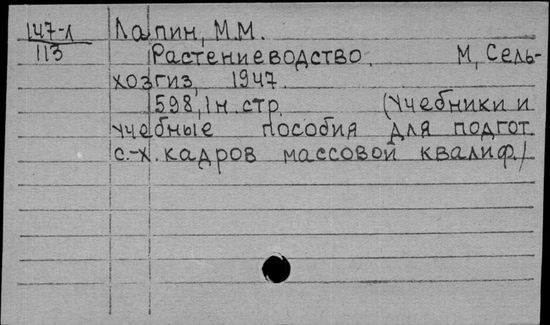 147-л Лапин, М.М.
113 Растениеводство. М, Сель-
хозгиз, 1947.
598, 1 н. стр. (Учебники и
учебные пособия для подгот.
с.-х. кадров массовой квалиф./